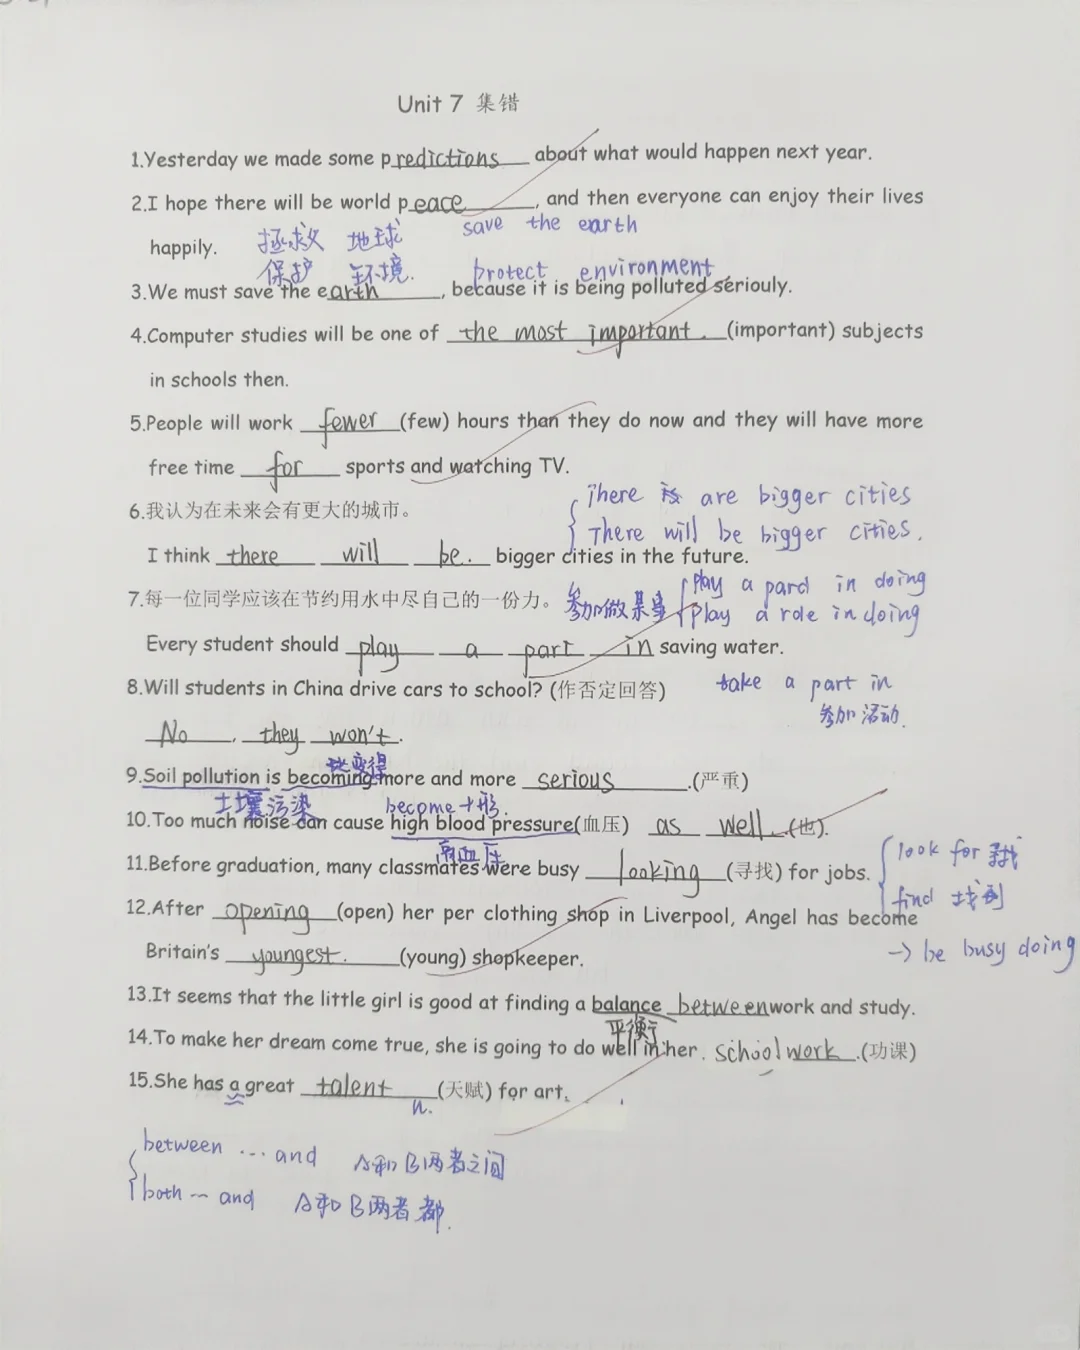 Unit 7 集错
1.Yesterday we made some predictions about what would happen next year.
2.I hope there will be world peace, and then everyone can enjoy their lives
save the earth
happily. 拯救 地球
保护 环境. protect environment
3.We must save the earth, because it is being polluted seriouly.
4.Computer studies will be one of the most important. (important) subjects
in schools then.
5.People will work fewer (few) hours than they do now and they will have more
free time for sports and watching TV.
There are bigger cities
6.我认为在未来会有更大的城市。
There will be bigger cities.
I think there will be. bigger cities in the future.
play a pard in doing
7.每一位同学应该在节约用水中尽自己的一份力。 参加做某事
play a role in doing
Every student should play a part in saving water.
8.Will students in China drive cars to school? (作否定回答) take a part in
参加活动.
No, they won't.
变得
9.Soil pollution is becoming more and more serious.(严重)
土壤污染 become+形.
10.Too much noise can cause high blood pressure(血压) as well.(也).
高血压
look for 寻找
11.Before graduation, many classmates were busy looking (寻找) for jobs.
find 找到
12.After opening (open) her per clothing shop in Liverpool, Angel has become
→ be busy doing
Britain's youngest. (young) shopkeeper.
13.It seems that the little girl is good at finding a balance between work and study.
平衡
14.To make her dream come true, she is going to do well in her. schoolwork.(功课)
15.She has a great talent (天赋) for art.
n.
between ... and A和B两者之间
both ... and A和B两者都.